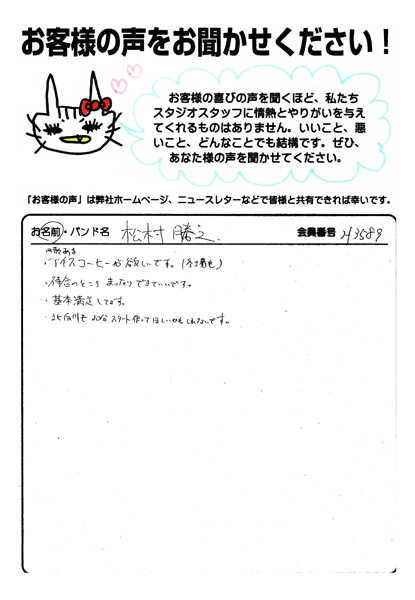 お客様の声をお聞かせください！
お客様の喜びの声を聞くほど、私たち
スタジオスタッフに情熱とやりがいを与え
てくれるものはありません。いいこと、悪
いこと、どんなことでも結構です。ぜひ、
あなた様の声を聞かせてください。
「お客様の声」は弊社ホームページ、ニュースレターなどで皆様と共有できれば幸いです。
お名前・バンド名 松村 勝之 会員番号 43589
・アイスコーヒーが欲しいです。
・待合のところ まったり できていいです。
・基本満足してます。
スタート作ってほしいかもしれないです。